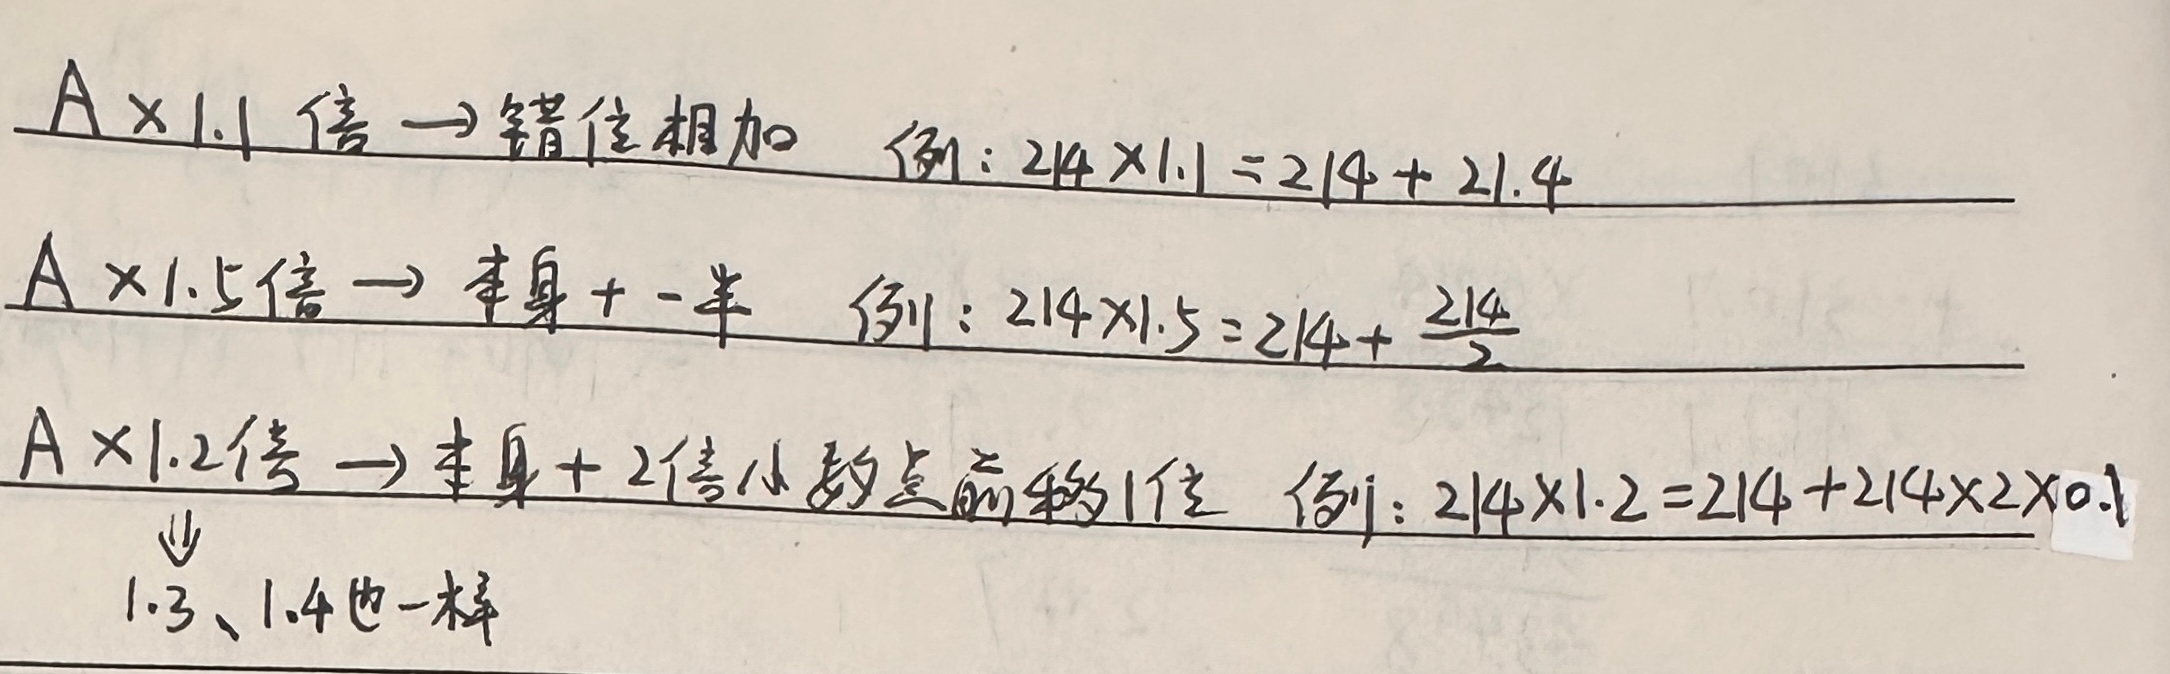 A×1.1倍→错位相加 例：214×1.1=214+21.4
A×1.5倍→本身+一半 例：214×1.5=214+214/2
A×1.2倍→本身+2倍小数点前移1位 例：214×1.2=214+214×2×0.1
⇓
1.3、1.4也一样